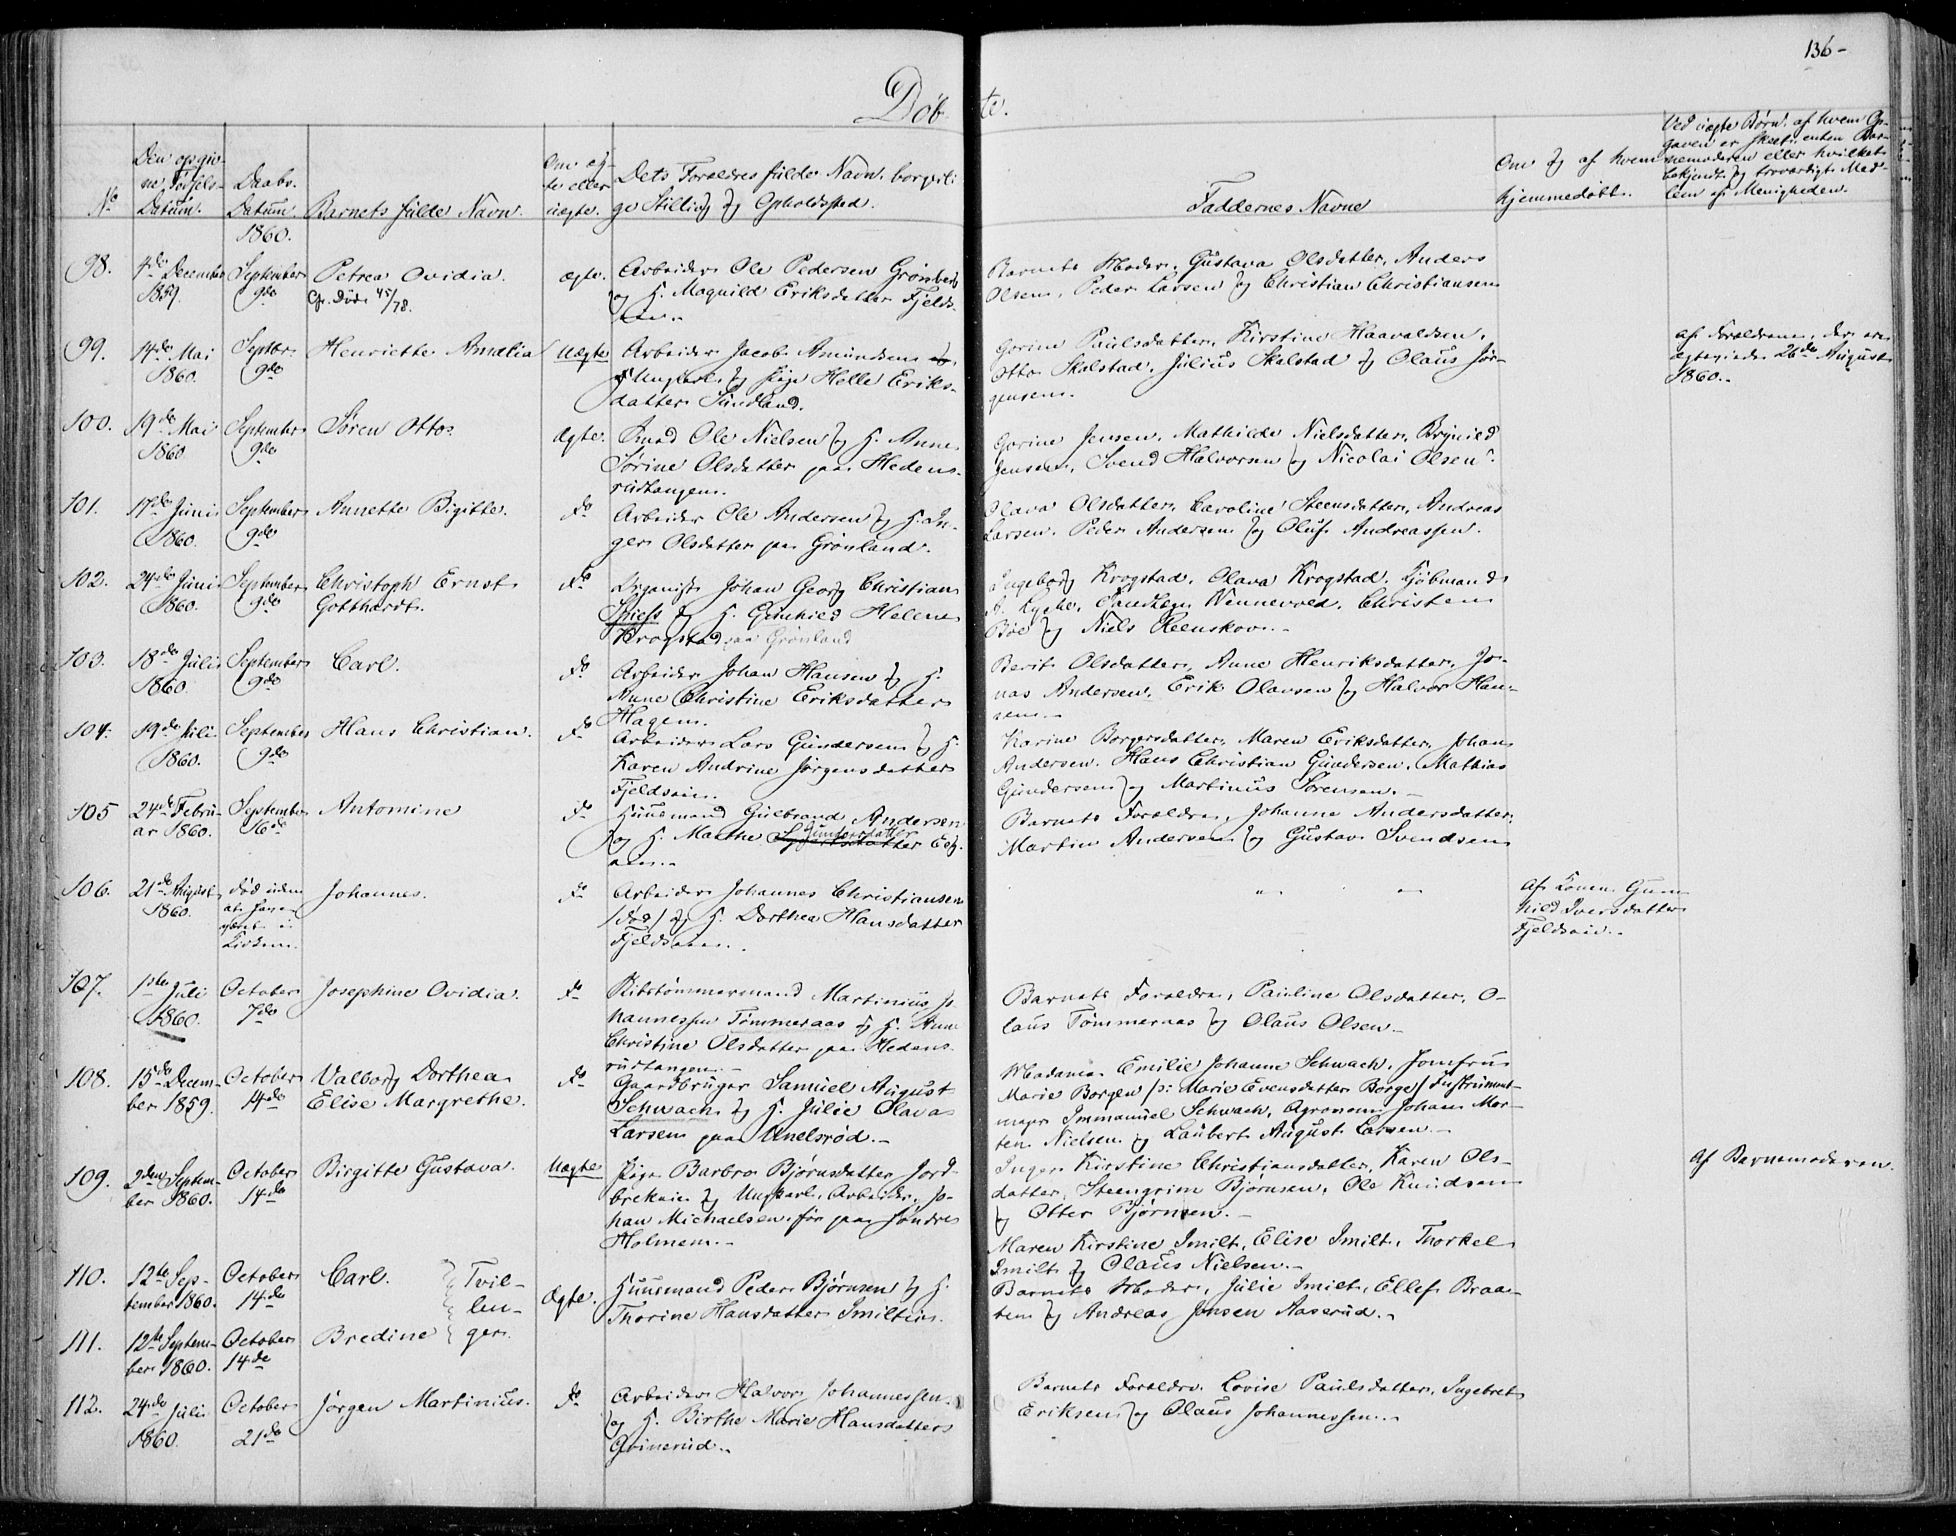 136-
Døb te.
No
Den opgiv-
ne Fødsels-
Datum.
Daabs-
Datum.
1860.
Barnets fulde Navn.
Om æg-
te eller
uægte.
Dets Forældres fulde Navn, borgerli
ge Stilling og Opholdssted.
Faddernes Navne
Om og af hvem
hjemmedøbt.
Ved uægte Børn, af hvem Op-
gaven er skeet, enten Bar-
nemoderen eller hvilket
bekjendt og troværdigt Med-
lem af Menigheden.
98.
4de December
1859.
September
9de
Petrea Ovidia.
ægte.
Arbeider Ole Pedersen Grønberg
og H. Magnild Eriksdatter Fjelds-
Barnets Moder, Gustava Olsdatter, Anders
Olsen, Peder Larsen og Christian Christiansen
99.
14de Mai
1860.
Septbr.
9de
Henriette Amalia
Uægte
Arbeider Jacob Amundsen
Ungkarl og Pige Helle Eriks-
datter Sundland.
Gorine Paulsdatter, Kirstine Haavaldsen,
Otto Skalstad, Julius Skalstad og Olaus Jør-
gensen.
af Forældrene, der ere
ægteviede 26de August
1860.
100.
19de Mai
1860
September
9de
Søren Otto.
Ægte.
Smed Ole Nielsen og H. Anne
Sørine Olsdatter paa Hedens-
rudtangen.
Gorine Jensen, Mathilde Nielsdatter, Brynild
Jensen, Svend Halvorsen og Nicolai Olsen.
101.
17de Juni
1860.
September
9de
Annette Bigitte.
Do
Arbeider Ole Andersen og H. In-
ger Olsdatter paa Grønland.
Olava Olsdatter, Caroline Steensdatter, Andreas
Larsen, Peder Andersen og Oluf Andreassen.
102.
24de Juni
1860.
September
9de
Christoph Ernst
Gotthardt.
Do
Organist Johan Georg Christian
Spiess og H. Gunhild Helene
Krogstad paa Grønland
Ingeborg Krogstad, Olava Krogstad, Kjøbmand
A. Lyche, Landhan. Wennevold, Christen
Bøe og Niels Reenskov.
103.
18de Juli
1860.
September
9de
Carl.
Do
Arbeider Johan Hansen og H.
Anne Christine Eriksdatter
Hagen.
Berit Olsdatter, Anne Henriksdatter, Jo-
nas Andersen, Erik Olavsen og Halvor Han-
sen.
104.
19de Juli
1860.
September
9de
Hans Christian.
Do
Arbeider Lars Gundersen og H.
Karen Andrine Jørgensdatter
Fjeldsøin.
Karine Borgersdatter, Maren Eriksdatter, Johan
Andersen, Hans Christian Gundersen, Mathias
Gundersen og Martinus Sørensen.
105
24de Febru-
ar 1860.
September
16de
Antomine
Do
Huusmand Gulbrand Andersen
og H. Marthe Gundersdatter
Barnets Forældre, Johanne Andersdatter,
Martin Andersen og Gustav Svendsen
106.
21de August
1860.
død uden
at have
været i
Kirken.
Johannes.
Do
Arbeider Johannes Christiansen
/død/ og H. Dorthea Hansdatter
Fjeldsøen.
" "
Af Konen Gun
hild Iversdatter
Fjeldsøin.
107.
1ste Juli
1860.
October
7de
Josephine Ovidia.
Do
Skibstømmermand Martinius Jo
hannessen Tømmeraas og H. Anne
Christine Olsdatter paa Hedens-
rudtangen.
Barnets Forældre, Pauline Olsdatter, O-
laus Tømmeraas og Olaus Olsen.
108.
15de Decem-
ber 1859.
October
14de
Valborg Dorthea
Elise Margrethe.
Do
Gaardbruger Samuel August
Schwach og H. Julie Olava
Larsen paa Unelsrød.
Madame Emilie Johanne Schwach, Jomfru
Marie Borgen /: Marie Evensdatter Borge/ Instrument-
mager Immanuel Schwach, Agronom Johan Mor-
ten Nielsen og Laubert August Larsen.
109.
2den Septem-
ber 1860.
October
14de
Birgitte Gustava.
Uægte
Pige Barbro Bjørnsdatter Jord-
brekeie og Ungkarl, Arbeider, Jo-
han Michaelsen før paa søndre
Holmen.
Inger Kirstine Christiansdatter, Karen Ols-
datter, Steengrim Bjørnsen, Ole Knudsen
og Otter Bjørnsen.
Af Barnemoderen.
110.
12te Sep-
tember 1860.
October
14de
Carl.
Tvil-
lin-
ger.
Ægte.
Huusmand Peder Bjørnsen og H.
Thorine Hansdatter Smiltein.
Maren Kirstine Smilt, Elise Smilt, Thorkel
Smilt og Olaus Nielsen.
111.
12te Septem-
ber 1860.
October
14de
Bredine
Barnets Moder, Julie Smilt, Ellef Braa-
ten og Andreas Jensen Aaserud.
112.
24de Juli
1860.
October
21de
Jørgen Martinius.
Do
Arbeider Halvor Johannessen
og H. Birthe Marie Hansdatter
Gvinerud.
Barnets Forældre, Lovise Paulsdatter, Ingebret
Eriksen og Olaus Johannessen.